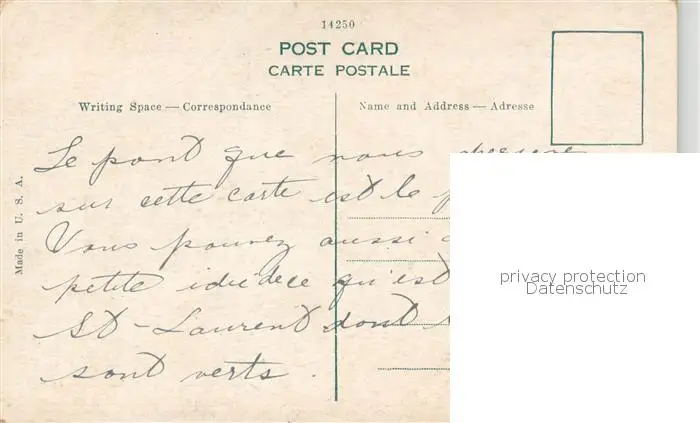 14250
POST CARD
CARTE POSTALE
Writing Space — Correspondance
Name and Address — Adresse
Made in U. S. A.
Le pont que nous
sur cette carte est le
Vous pouvez aussi
petite idée de ce qu'est
St-Laurent dont
sont verts.
privacy protection
Datenschutz